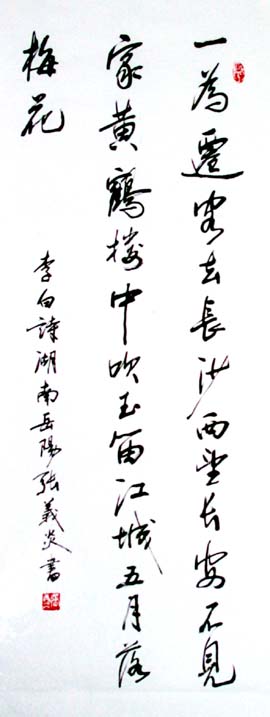 一為遷客去長沙西望長安不見
家黄鶴樓中吹玉笛江城五月落
梅花
李白詩湖南岳陽張義炎書